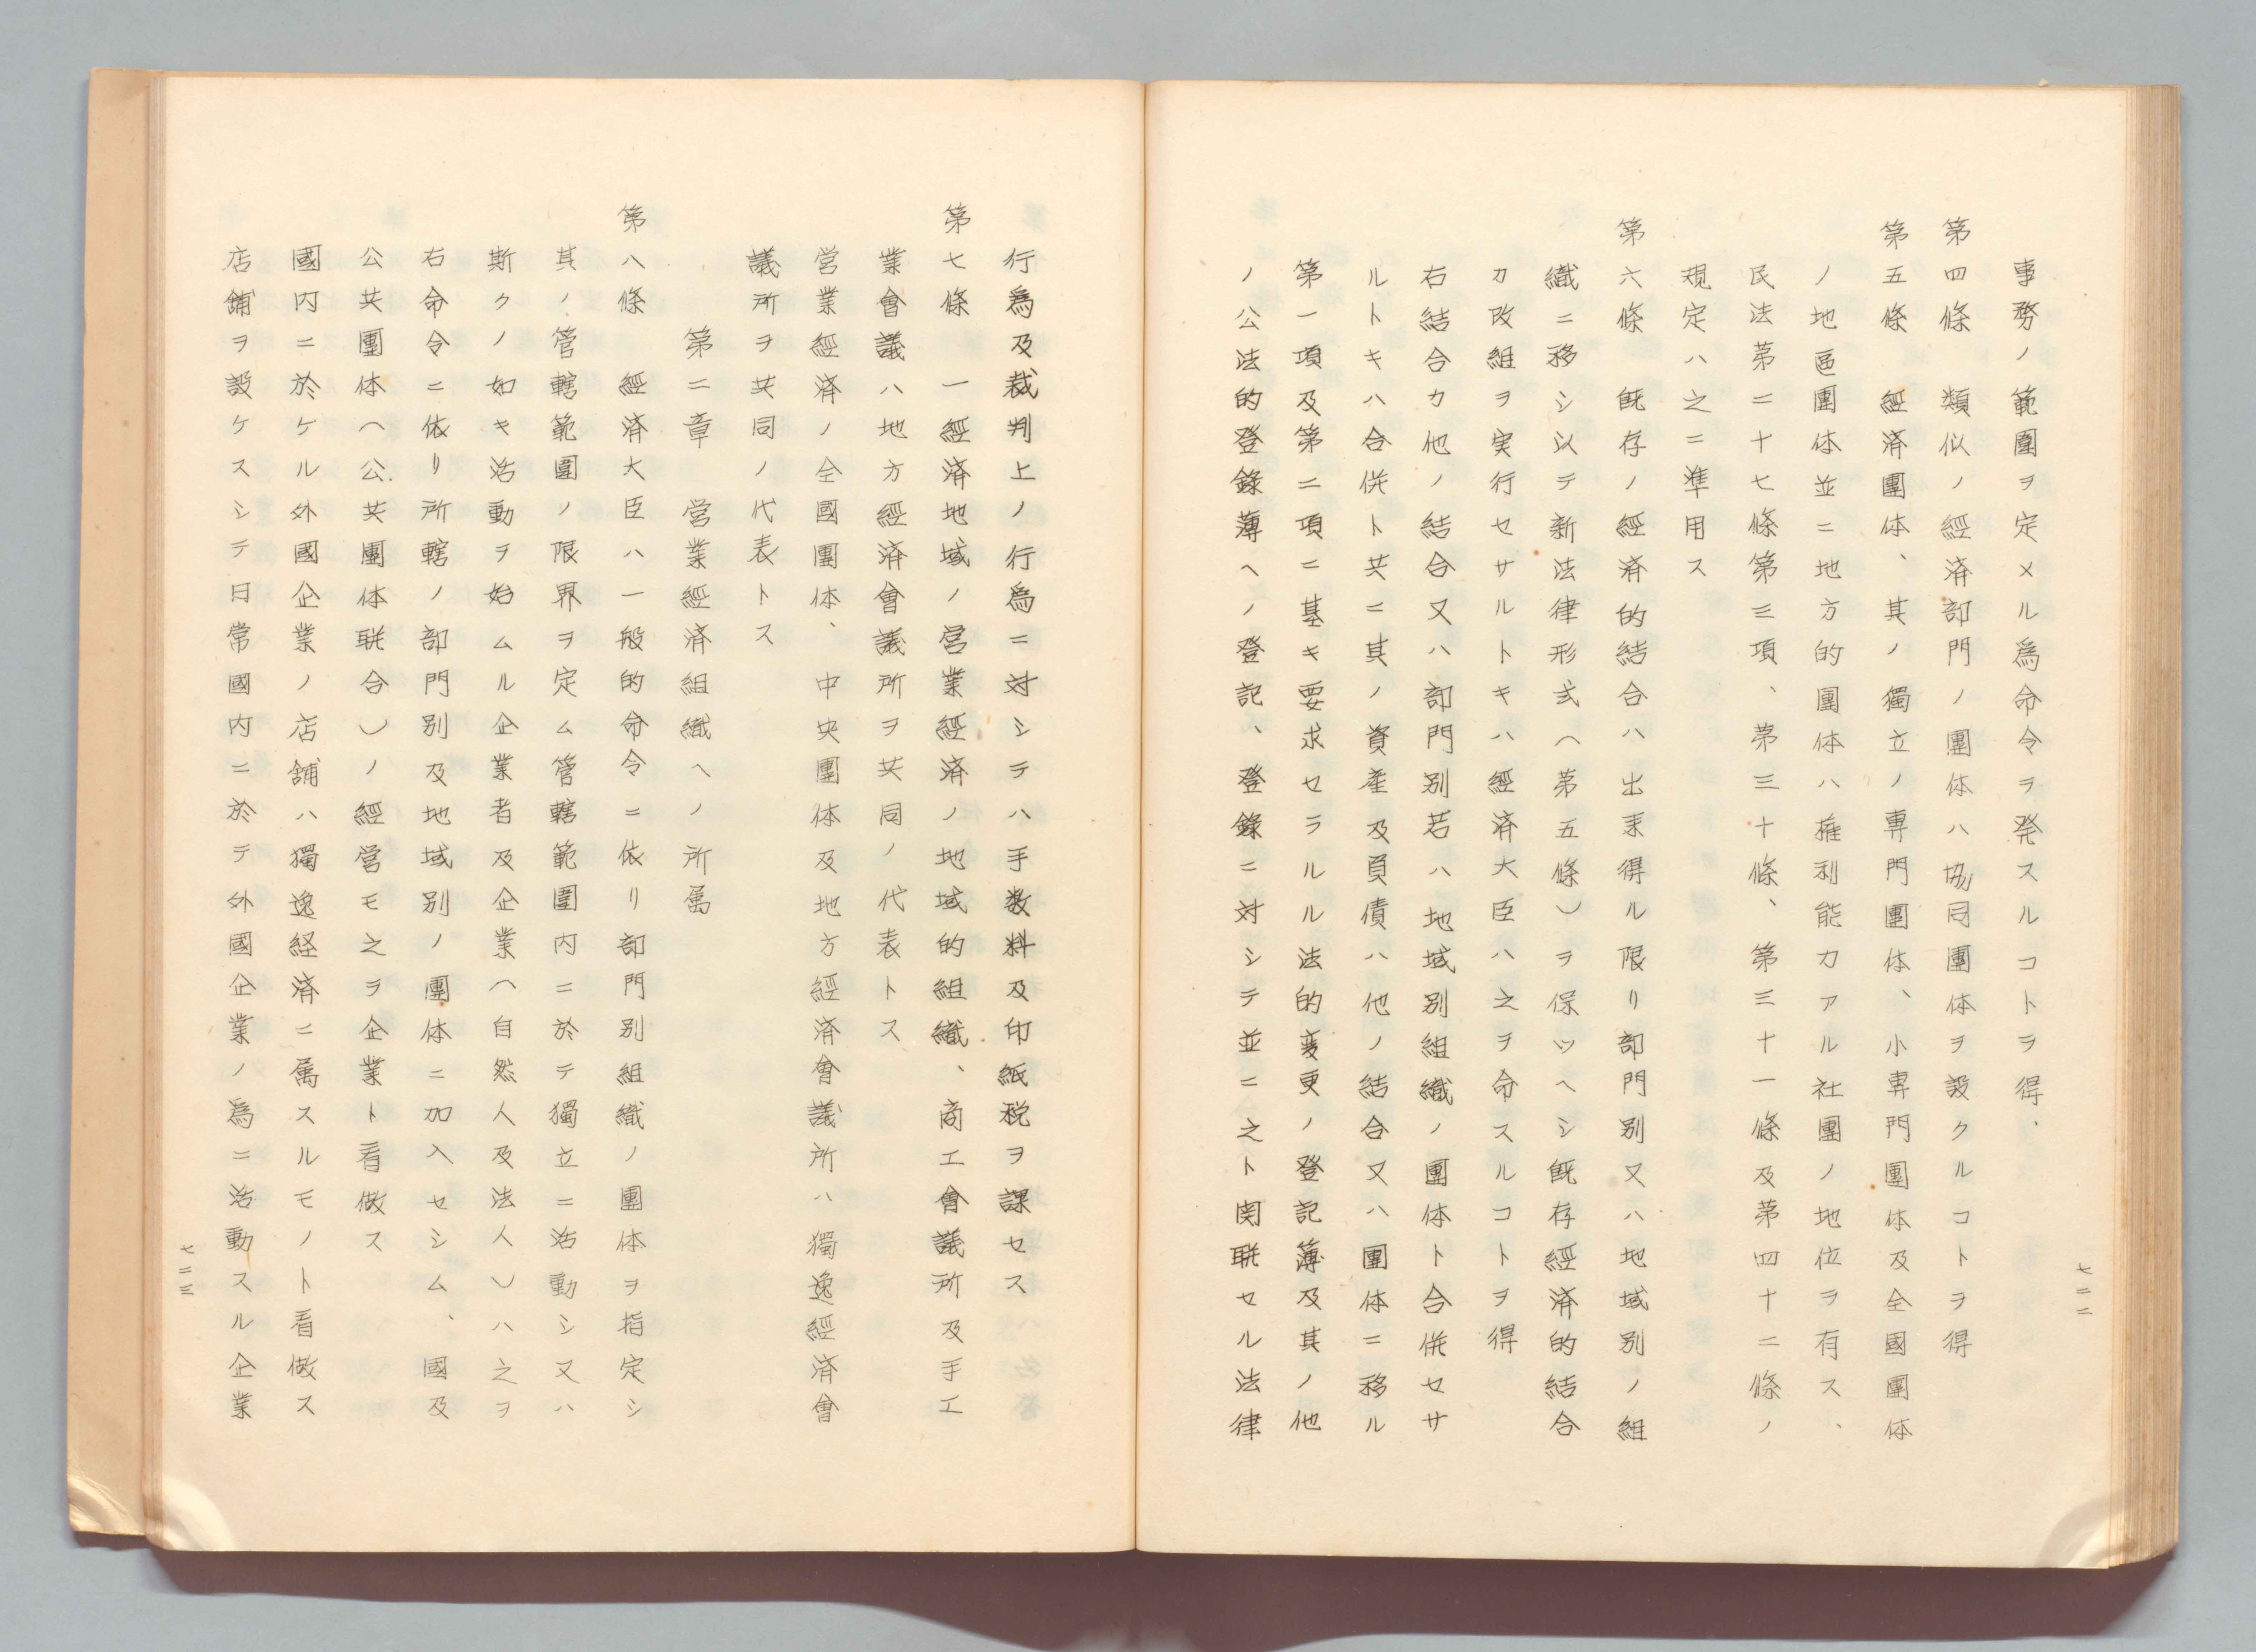 事務ノ範圍ヲ定メル為命令ヲ発スルコトヲ得、
第四條　類似ノ經済部門ノ團体ハ協同團体ヲ設クルコトヲ得
第五條　經済團体、其ノ獨立ノ專門團体、小專門團体及全國團体
ノ地區團体並ニ地方的團体ハ権利能力アル社團ノ地位ヲ有ス、
民法第二十七條第三項、第三十條、第三十一條及第四十二條ノ
規定ハ之ニ準用ス
第六條　既存ノ經済的結合ハ出来得ル限リ部門別又ハ地域別ノ組
織ニ移シ以テ新法律形式（第五條）ヲ保ツヘシ既存經済的結合
カ改組ヲ実行セサルトキハ經済大臣ハ之ヲ命スルコトヲ得
右結合カ他ノ結合又ハ部門別若ハ地域別組織ノ團体ト合併セサ
ルトキハ合併ト共ニ其ノ資産及負債ハ他ノ結合又ハ團体ニ移ル
第一項及第二項ニ基キ要求セラルル法的変更ノ登記簿及其ノ他
ノ公法的登錄薄ヘノ登記、登錄ニ対シテ並ニ之ト関聨セル法律
七二二
行為及裁判上ノ行為ニ対シテハ手数料及印紙税ヲ課セス
第七條　一經済地域ノ営業經済ノ地域的組織、商工會議所及手工
業會議ハ地方經済會議所ヲ共同ノ代表トス
営業經済ノ全國團体、中央團体及地方經済會議所ハ獨逸經済會
議所ヲ共同ノ代表トス
第二章　営業經済組織ヘノ所属
第八條　經済大臣ハ一般的命令ニ依リ部門別組織ノ團体ヲ指定シ
其ノ管轄範圍ノ限界ヲ定ム管轄範圍内ニ於テ獨立ニ活動シ又ハ
斯クノ如キ活動ヲ始ムル企業者及企業（自然人及法人）ハ之ヲ
右命令ニ依リ所轄ノ部門別及地域別ノ團体ニ加入セシム、國及
公共團体（公共團体聨合）ノ經営モ之ヲ企業ト看做ス
國内ニ於ケル外國企業ノ店舖ハ獨逸経済ニ属スルモノト看做ス
店舖ヲ設ケスシテ日常國内ニ於テ外國企業ノ為ニ活動スル企業
七二三